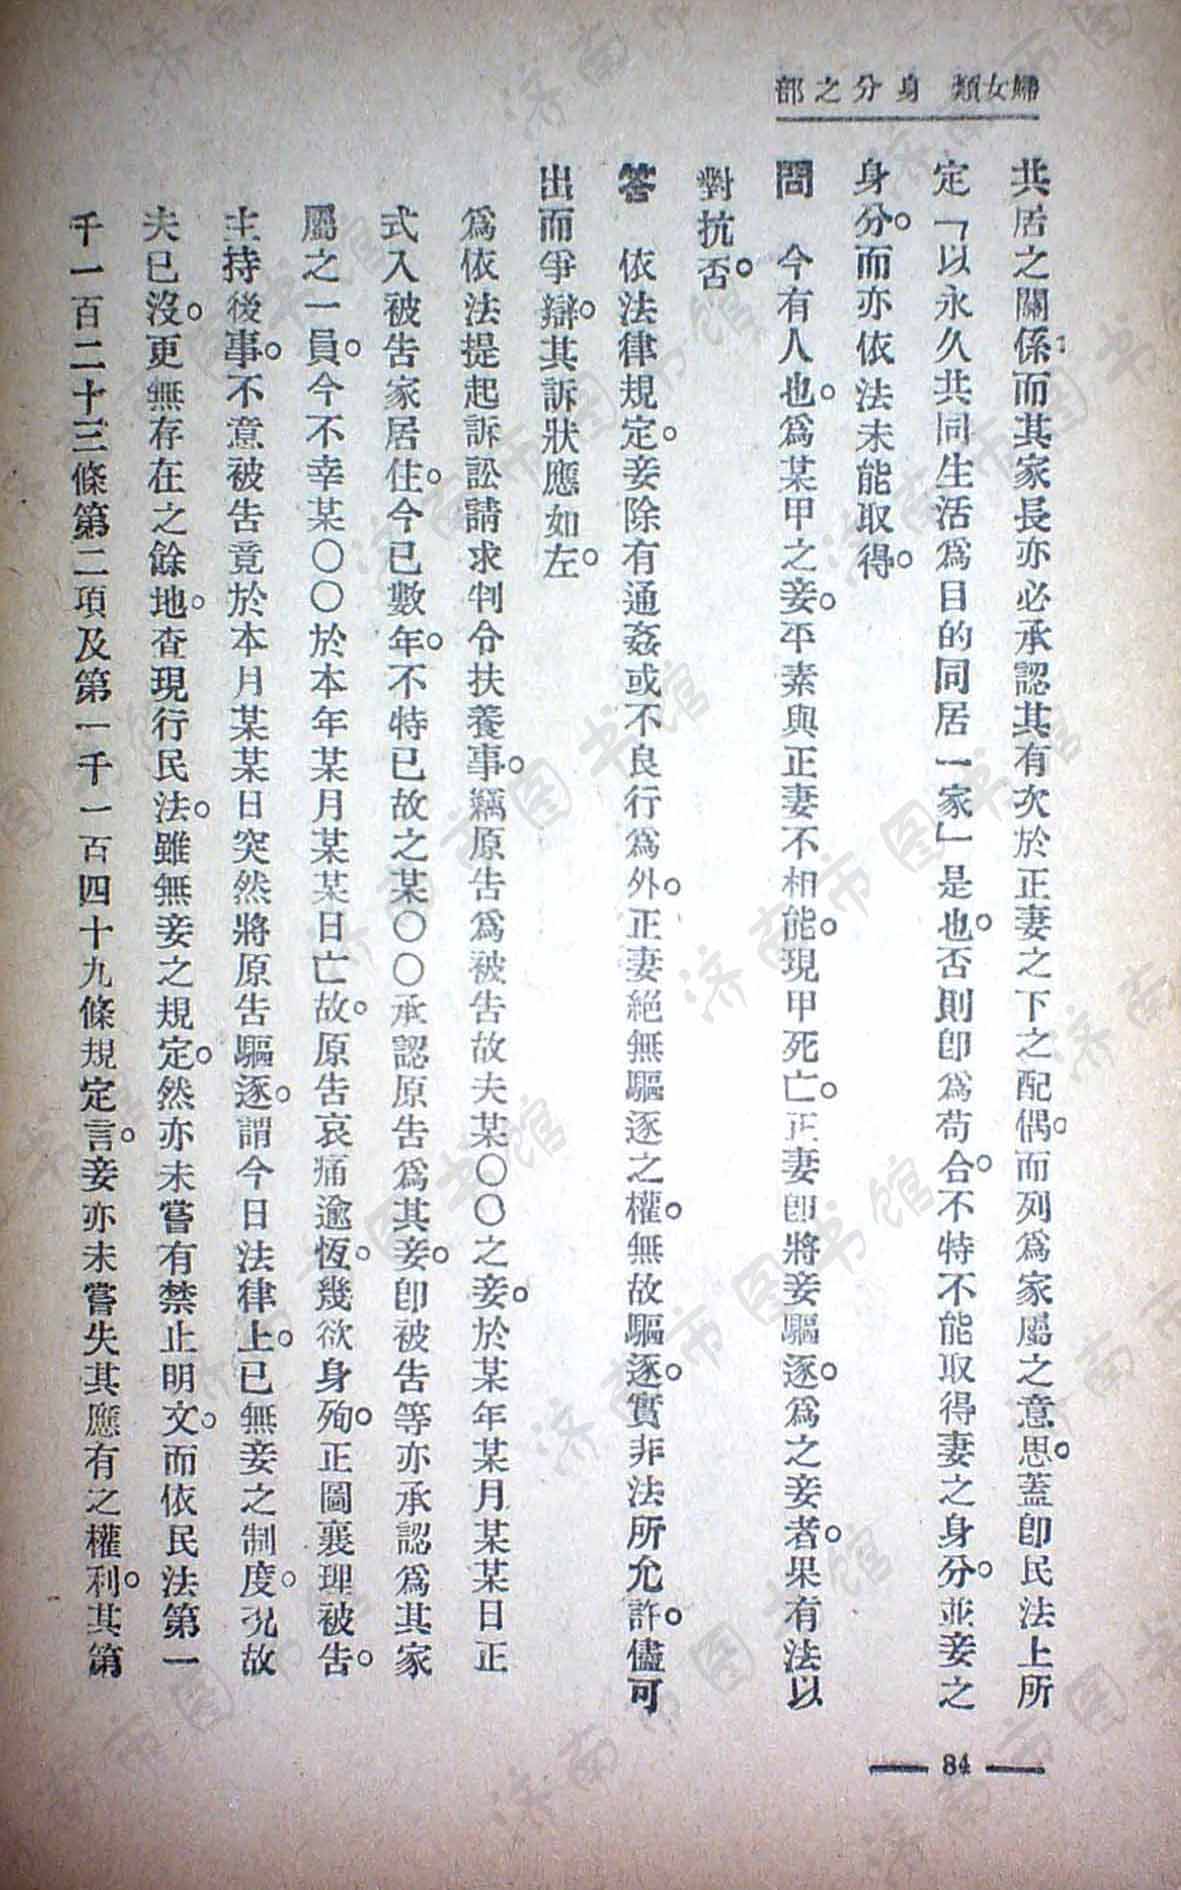 婦女類　身分之部
共居之關係而其家長亦必承認其有次於正妻之下之配偶。而列爲家屬之意思。蓋卽民法上所
定「以永久共同生活爲目的同居一家」是也。否則卽爲苟合。不特不能取得妻之身分。並妾之
身分。而亦依法未能取得。
問　今有人也。爲某甲之妾。平素與正妻不相能。現甲死亡。正妻卽將妾驅逐。爲之妾者。果有法以
對抗否。
答　依法律規定。妾除有通姦或不良行爲外。正妻絕無驅逐之權。無故驅逐。實非法所允許。儘可
出而爭辯。其訴狀應如左。
爲依法提起訴訟請求判令扶養事。竊原告爲被告故夫某〇〇之妾。於某年某月某某日正
式入被告家居住。今已數年。不特已故之某〇〇承認原告爲其妾。卽被告等亦承認爲其家
屬之一員。今不幸某〇〇於本年某月某某日亡故。原告哀痛逾恆。幾欲身殉。正圖襄理被告。
主持後事。不意被告竟於本月某某日突然將原告驅逐。謂今日法律上。已無妾之制度。况故
夫已沒。更無存在之餘地。查現行民法。雖無妾之規定。然亦未嘗有禁止明文。而依民法第一
千一百二十三條第二項及第一千一百四十九條規定言。妾亦未嘗失其應有之權利。其第
84
济南市图书馆